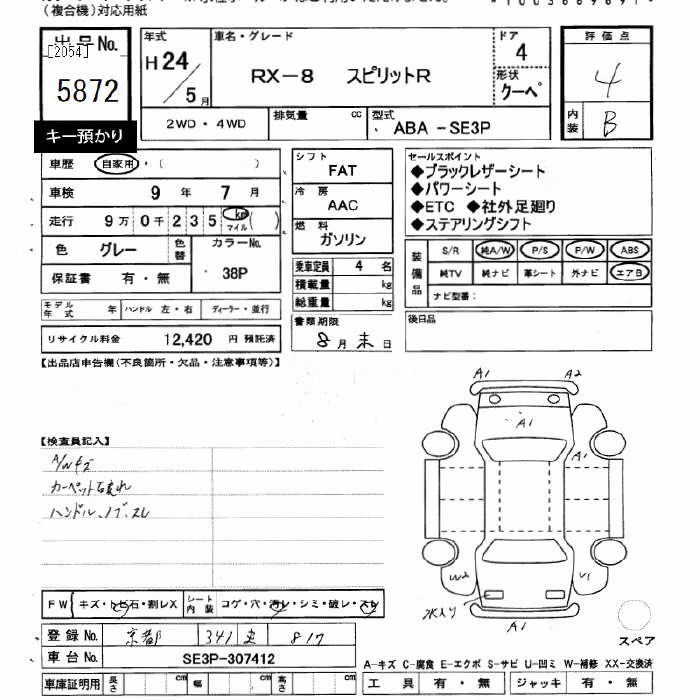 (複合機)対応用紙
出品No.
[2054]
5872
キー預かり
年式
H24/5月
車名・グレード
RX-8 スピリットR
ドア
4
形状
クーペ
評価点
4
内装
B
2WD・4WD
排気量 cc
型式
ABA -SE3P
車歴 自家用・( )
車検 9年 7月
走行 9万0千235 km マイル ( )
色 グレー 色替
カラーNo.
38P
保証書 有・無
モデル年式 年 ハンドル 左・右 ディーラー・並行
リサイクル料金 12,420 円 預託済
シフト
FAT
冷房
AAC
燃料
ガソリン
乗車定員 4 名
積載量 kg
総重量 kg
書類期限
8月末日
セールスポイント
◆ブラックレザーシート
◆パワーシート
◆ETC ◆社外足廻り
◆ステアリングシフト
装備品
S/R 純A/W P/S P/W ABS
純TV 純ナビ 革シート 外ナビ エアB
ナビ型番:
後日品
【出品店申告欄(不良箇所・欠品・注意事項等)】
【検査員記入】
A/Wキズ
カーペット汚れ
ハンドル、ノブ、スレ
FW キズ・トビ石・割レX
シート内装 コゲ・穴・汚レ・シミ・破レ・スレ
登録No. 京都 341 817
車台No. SE3P-307412
車庫証明用 長さ cm 幅 cm 高さ cm
A1 A2
A1
A1
W2 U1
水入り
A1
スペア
A-キズ C-腐食 E-エクボ S-サビ U-凹ミ W-補修 XX-交換済
工具 有・無 ジャッキ 有・無